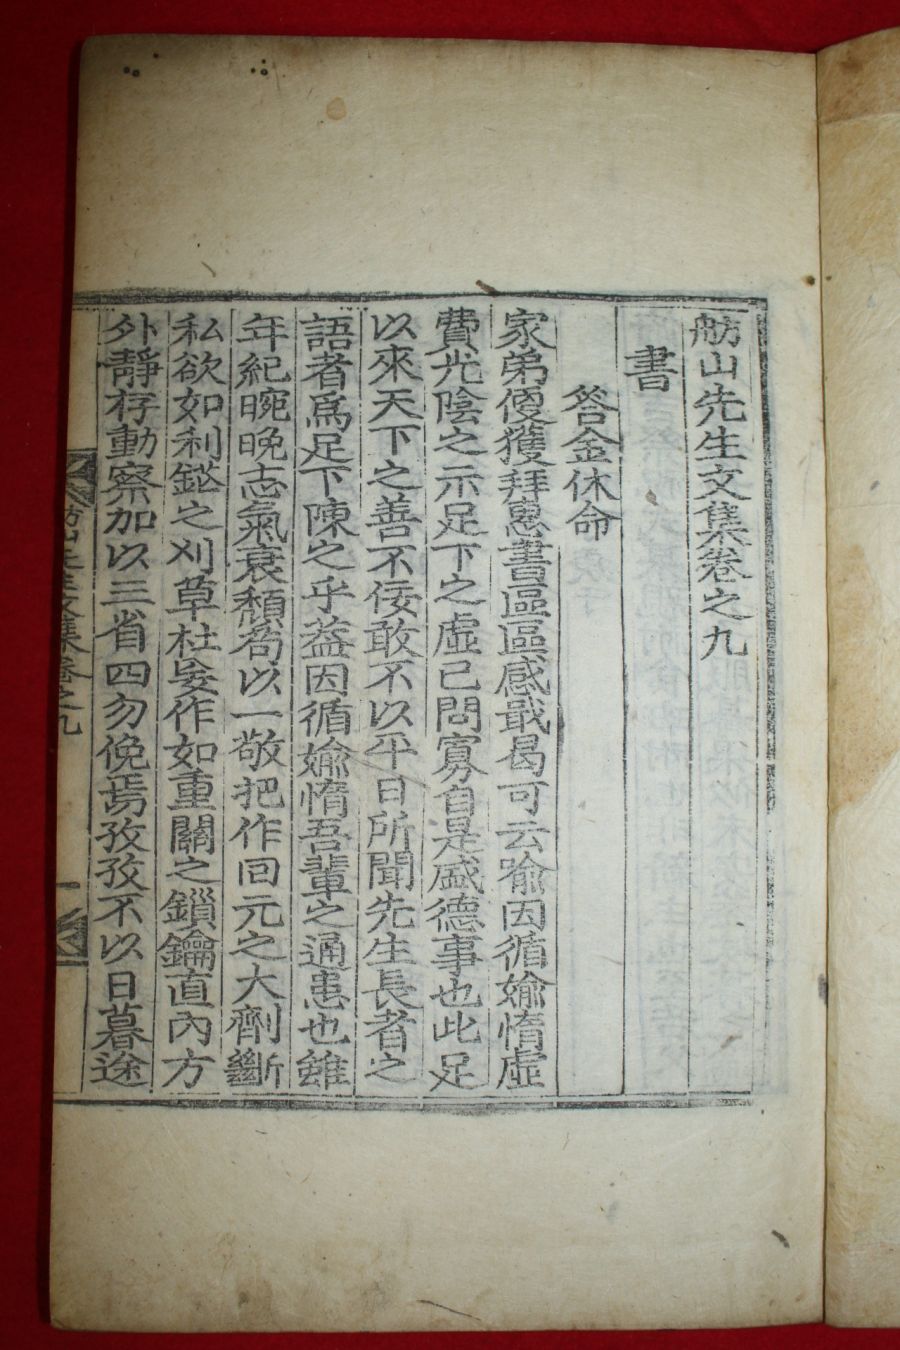 舫山先生文集卷之九
書
答金休命
家弟便獲拜惠書區區感戢曷可云喩因循媮惰虛
費光陰之示足下之虛已問寡自是盛德事也此足
以來天下之善不佞敢不以平日所聞先生長者之
語者爲足下陳之乎蓋因循媮惰吾輩之通患也雖
年紀晼晩志氣衰頹苟以一敬把作回元之大劑斷
私欲如利鎹之刈草杜妄作如重關之鎖鑰直內方
外靜存動察加以三省四勿俛焉孜孜不以日暮途
舫山先生文集卷之九
一